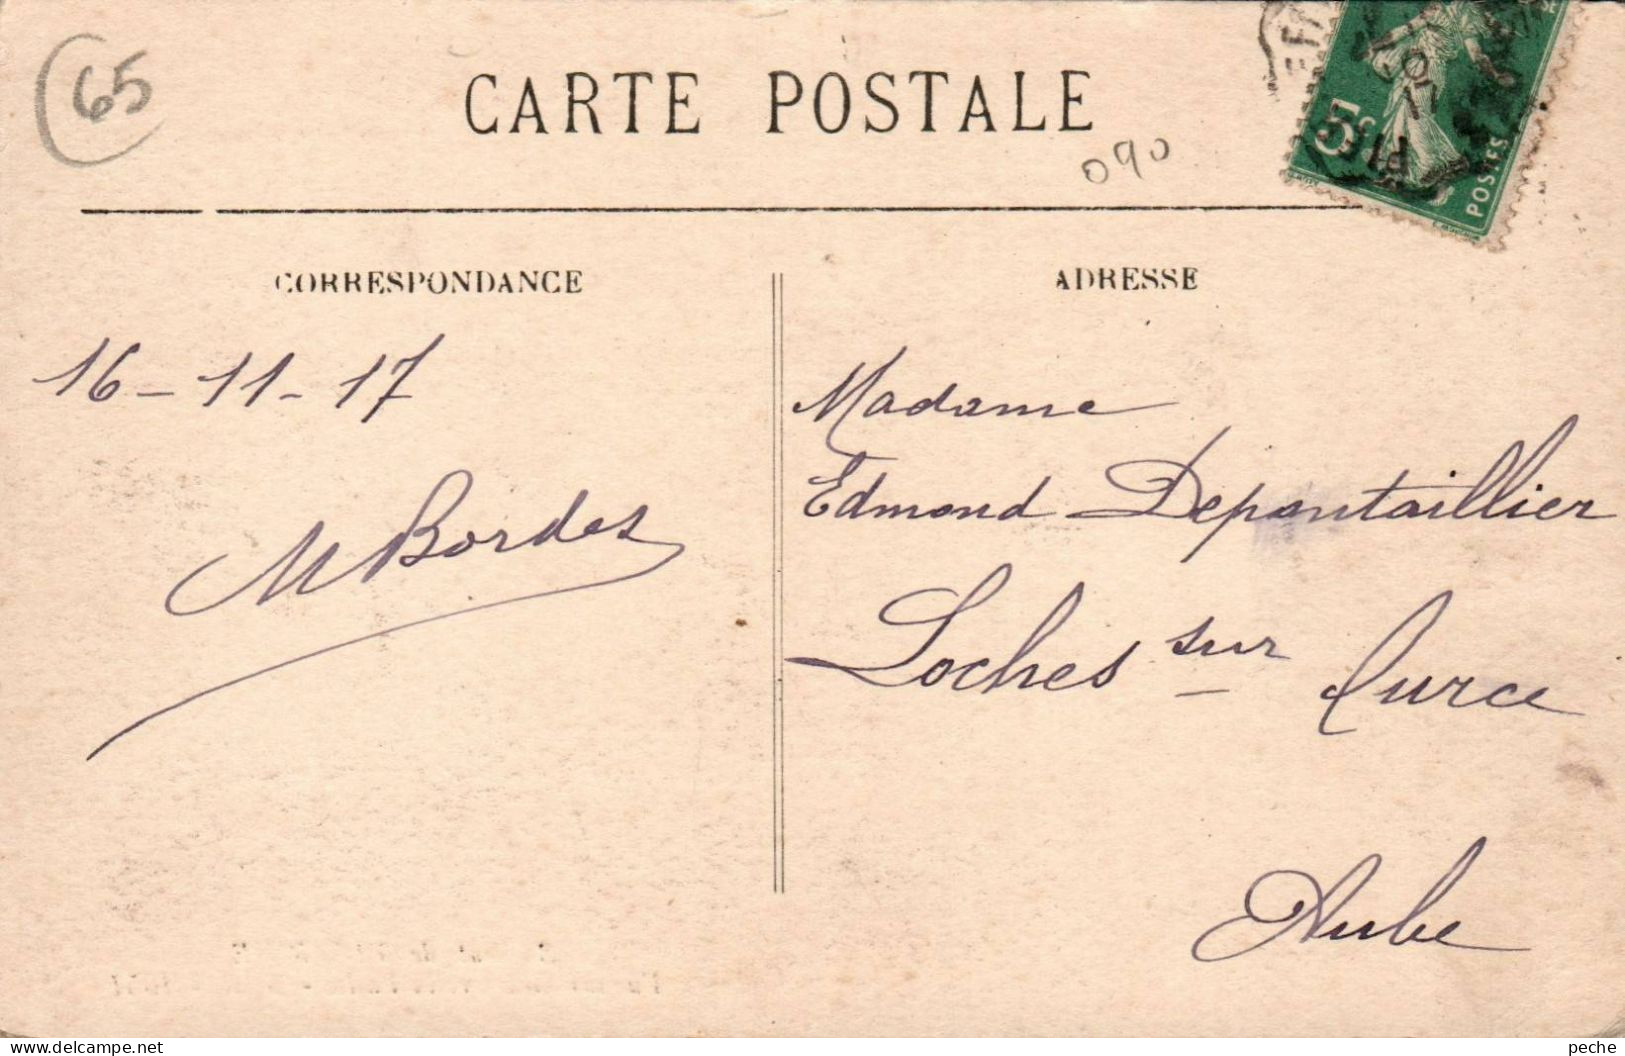 65
CARTE POSTALE
090
5c
POSTES
CORRESPONDANCE
16-11-17
M Bordes
ADRESSE
Madame
Edmond Depontaillier
Loches sur Ource
Aube
delcampe.net
peche